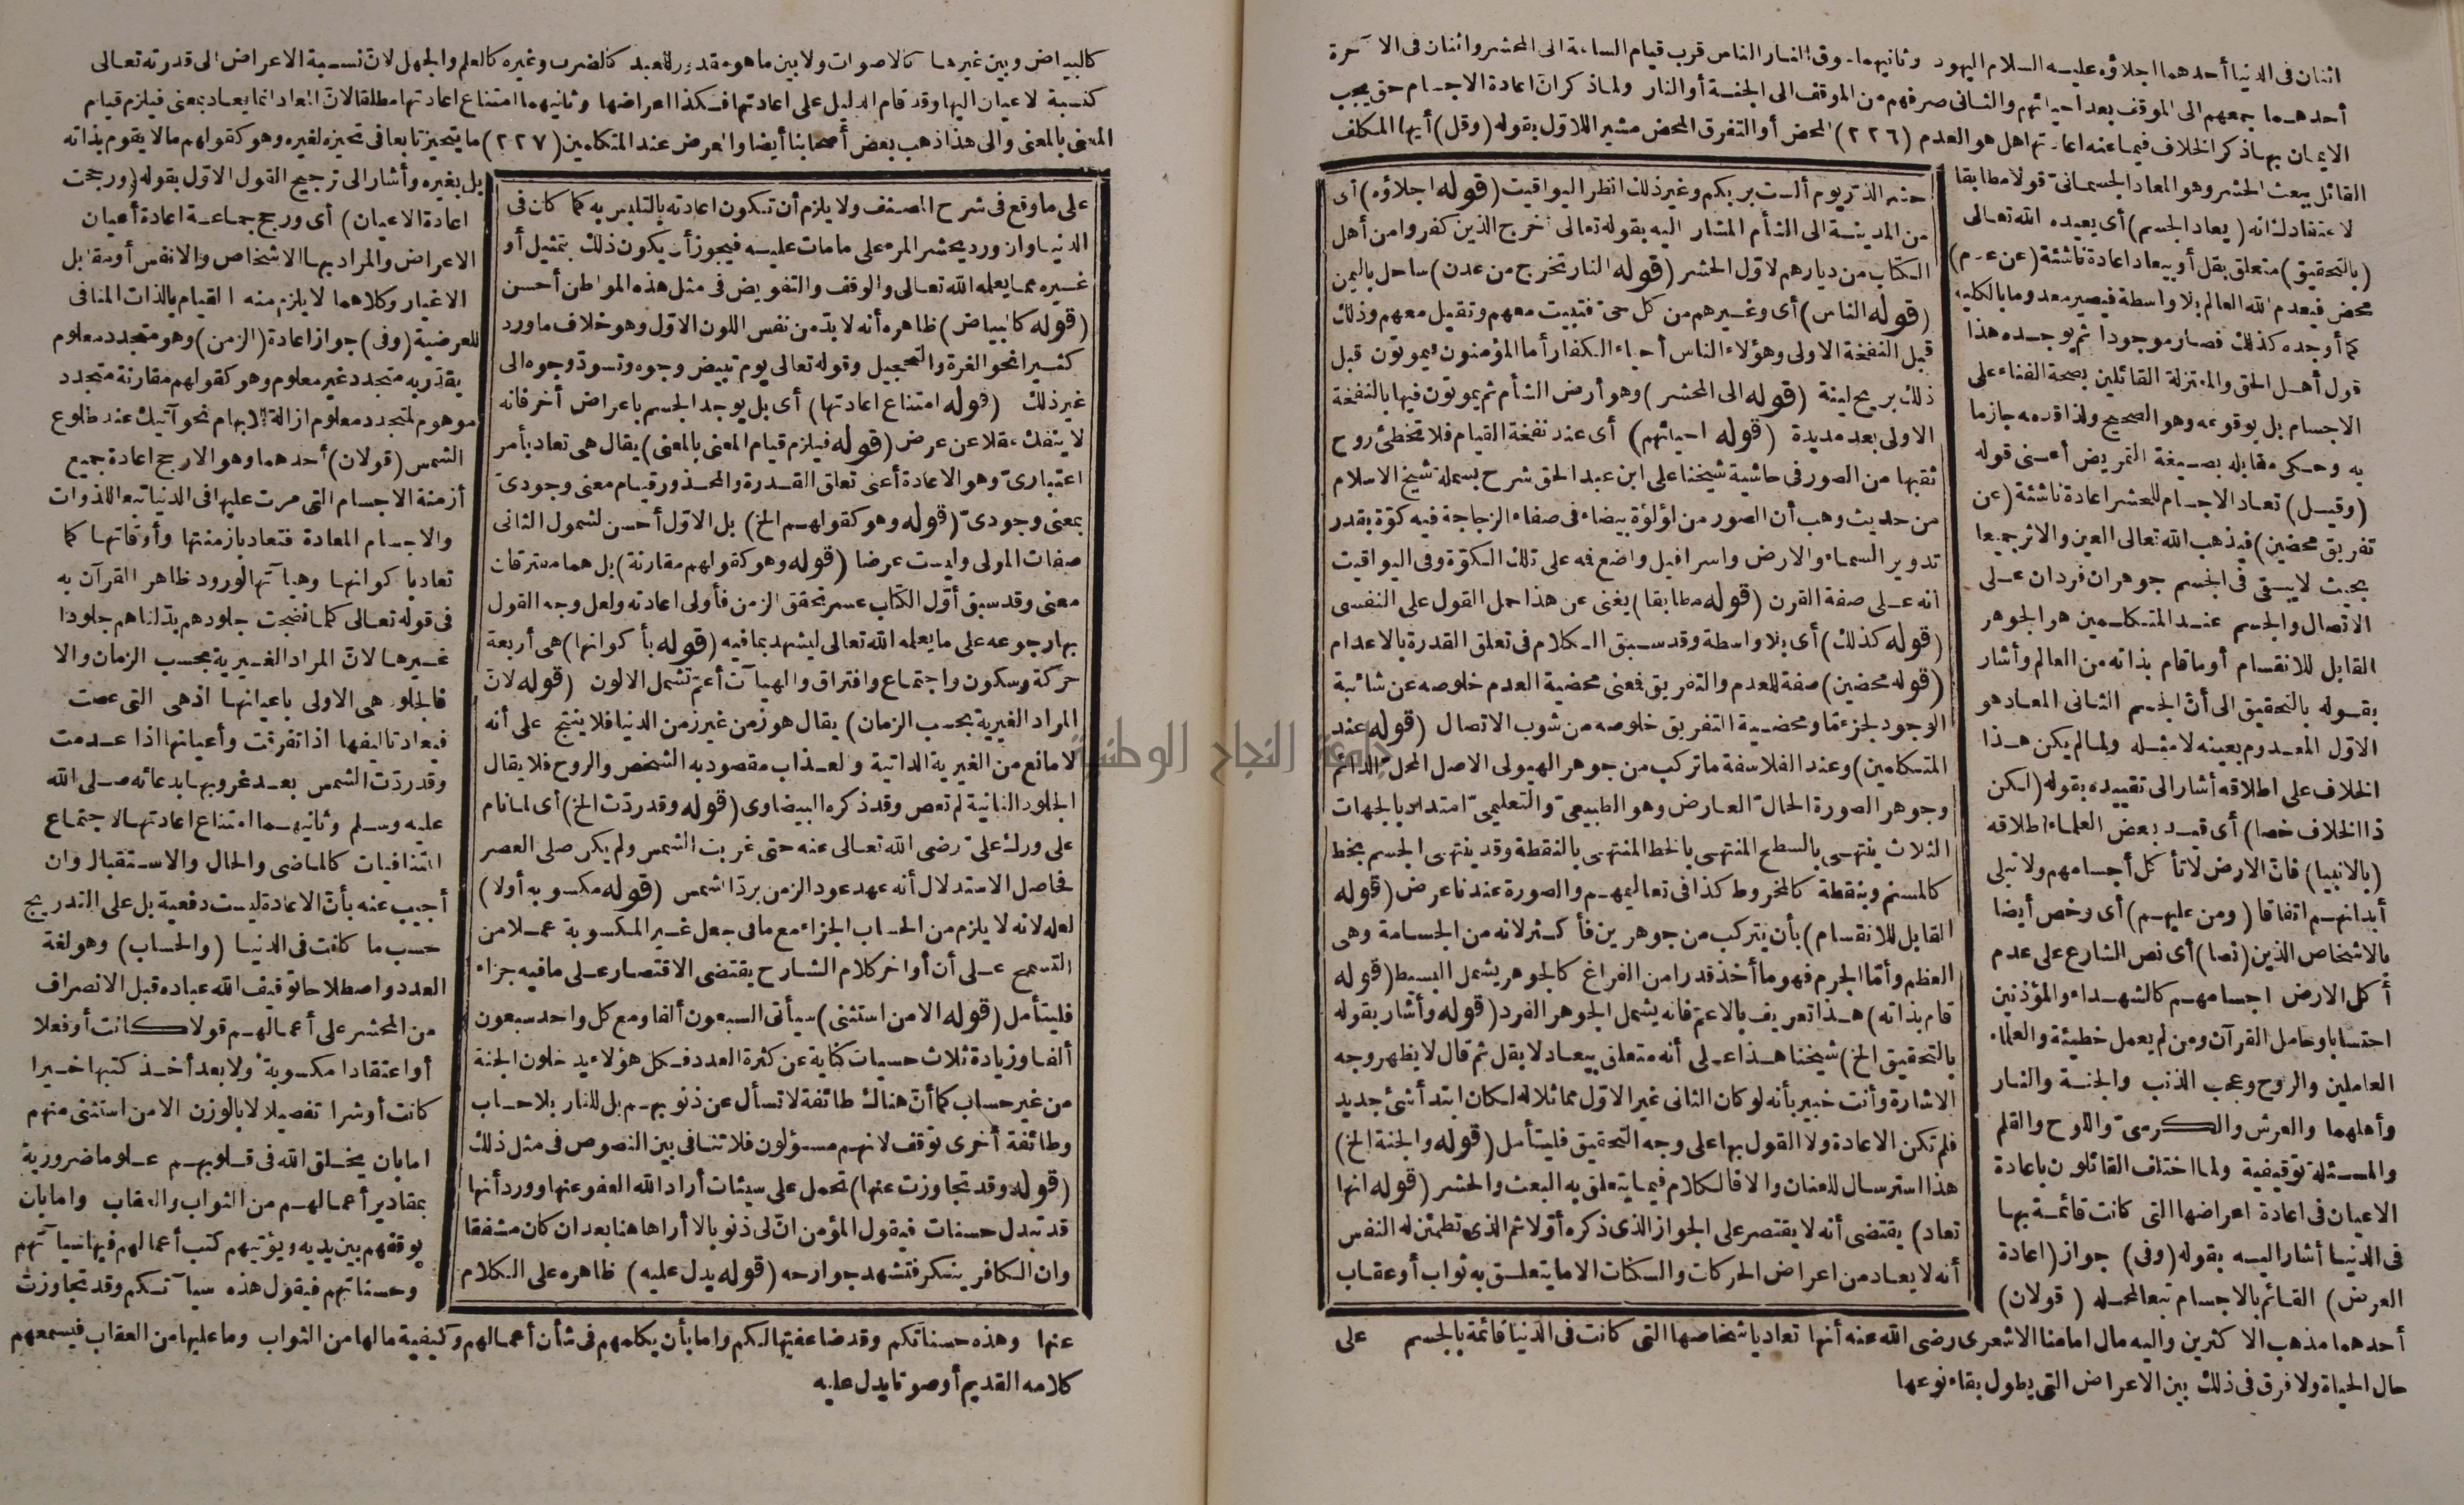 اثنان فى الدنيا أحدهما اجلاؤه عليه السلام اليهود وثانيهما سوق النار الناس قرب قيام الساعة الى المحشر واثنان فى الآخرة
أحدهما جمعهم الى الموقف بعد احيائهم والثانى صرفهم من الموقف الى الجنة أو النار ولما ذكر ان اعادة الاجسام حق يجب
الايمان بها ذكر الخلاف فيما عنه اعادتها هل هو العدم (٢٢٦) المحض أو التفرق المحض مشيرا للاول بقوله (وقل) أيها المكلف
القائل ببعث الحشر وهو المعاد الجسمانى قولا مطابقا
لاعتقادك انه (يعاد الجسم) أى يعيده الله تعالى
(بالتحقيق) متعلق بقل أو بيعاد اعادة ناشئة (عن عدم)
محض فيعدم الله العالم بلا واسطة فيصير معدوما بالكلية
كما أوجده كذلك فصار موجودا ثم يوجده هذا
قول أهل الحق والمعتزلة القائلين بصحة الفناء على
الاجسام بل بوقوعه وهو الصحيح ولذا قدمه جازما
به وحكى مقابله بصيغة التمريض أعنى قوله
(وقيل) تعاد الاجسام للحشر اعادة ناشئة (عن
تفريق محضين) فيذهب الله تعالى العين والاثر جميعا
بحيث لا يبقى فى الجسم جوهران فردان على
الاتصال والجسم عند المتكلمين هو الجوهر
القابل للانقسام أو ما قام بذاته من العالم وأشار
بقوله بالتحقيق الى أن الجسم الثانى المعاد هو
الاول المعدوم بعينه لا مثله ولما لم يكن هذا
الخلاف على اطلاقه أشار الى تقييده بقوله (لكن
ذا الخلاف خصا) أى قيد بعض العلماء اطلاقه
(بالانبيا) فان الارض لا تأكل أجسامهم ولا تبلى
أبدانهم اتفاقا (ومن عليهم) أى وخص أيضا
بالاشخاص الذين (نصا) أى نص الشارع على عدم
أكل الارض اجسامهم كالشهداء والمؤذنين
احتسابا وحامل القرآن ومن لم يعمل خطيئة والعلماء
العاملين والروح وعجب الذنب والجنة والنار
وأهلهما والعرش والكرسى واللوح والقلم
والمسئلة توقيفية ولما اختلف القائلون باعادة
الاعيان فى اعادة اعراضها التى كانت قائمة بها
فى الدنيا أشار اليه بقوله (وفى) جواز (اعادة
العرض) القائم بالاجسام تبعا لمحله (قولان)
أحدهما مذهب الاكثرين واليه مال امامنا الاشعرى رضى الله عنه أنها تعاد باشخاصها التى كانت فى الدنيا قائمة بالجسم على
حال الحياة ولا فرق فى ذلك بين الاعراض التى يطول بقاء نوعها
حشر الذر يوم ألست بربكم وغير ذلك انظر اليواقيت (قوله اجلاؤه) أى
من المدينة الى الشأم المشار اليه بقوله تعالى أخرج الذين كفروا من أهل
الكتاب من ديارهم لاول الحشر (قوله النار تخرج من عدن) ساحل باليمن
(قوله الناس) أى وغيرهم من كل حى فتبيت معهم وتقيل معهم وذلك
قبيل النفخة الاولى وهؤلاء الناس أحياء الكفار أما المؤمنون فيموتون قبل
ذلك بريح لينة (قوله الى المحشر) وهو أرض الشأم ثم يموتون فيها بالنفخة
الاولى بعد مديدة (قوله احيائهم) أى عند نفخة القيام فلا تخطئ روح
ثقبها من الصور فى حاشية شيخنا على ابن عبد الحق شرح بسملة شيخ الاسلام
من حديث وهب أن الصور من لؤلؤة بيضاء فى صفاء الزجاجة فيه كوة بقدر
تدوير السماء والارض واسرافيل واضع فمه على تلك الكوة وفى اليواقيت
انه على صفة القرن (قوله مطابقا) يغنى عن هذا حمل القول على النفسى
(قوله كذلك) أى بلا واسطة وقد سبق الكلام فى تعلق القدرة بالاعدام
(قوله محضين) صفة للعدم والتفريق فمعنى محضية العدم خلوصه عن شائبة
الوجود لجزء ما ومحضية التفريق خلوصه من شوب الاتصال (قوله عند
المتكلمين) وعند الفلاسفة ما تركب من جوهر الهيولى الاصل المحل الدائم
وجوهر الصورة الحال العارض وهو الطبيعى والتعليمى امتداد بالجهات
الثلاث ينتهى بالسطح المنتهى بالخط المنتهى بالنقطة وقد ينتهى الجسم بخط
كالمسنم وبنقطة كالمخروط كذا فى تعاليمهم والصورة عندنا عرض (قوله
القابل للانقسام) بأن يتركب من جوهرين فأكثر لانه من الجسامة وهى
العظم وأما الجرم فهو ما أخذ قدرا من الفراغ كالجوهر يشمل البسيط (قوله
قام بذاته) هذا تعريف بالاعم فانه يشمل الجوهر الفرد (قوله وأشار بقوله
بالتحقيق الخ) شيخنا هذا على أنه متعلق بيعاد لا بقل ثم قال لا يظهر وجه
الاشارة وأنت خبير بأنه لو كان الثانى غير الاول مماثلا له لكان ابتدأ شئ جديد
فلم تكن الاعادة ولا القول بها على وجه التحقيق فليتأمل (قوله والجنة الخ)
هذا استرسال للعنان والا فالكلام فيما يتعلق به البعث والحشر (قوله انها
تعاد) يقتضى أنه لا يقتصر على الجواز الذى ذكره أولا ثم الذى تطمئن له النفس
أنه لا يعاد من اعراض الحركات والسكنات الا ما يتعلق به ثواب أو عقاب
كالبياض وبين غيرها كالاصوات ولا بين ما هو مقدور للعبد كالضرب وغيره كالعلم والجهل لان نسبة الاعراض الى قدرته تعالى
كنسبة الاعيان اليها وقد قام الدليل على اعادتها فكذا اعراضها وثانيهما امتناع اعادتها مطلقا لان المعاد انما يعاد بمعنى فيلزم قيام
المعنى بالمعنى والى هذا ذهب بعض أصحابنا أيضا والعرض عند المتكلمين (٢٢٧) ما يتحيز تابعا فى تحيزه لغيره وهو كقولهم ما لا يقوم بذاته
بل بغيره وأشار الى ترجيح القول الاول بقوله (ورجحت
اعادة الاعيان) أى ورجح جماعة اعادة أعيان
الاعراض والمراد بها الاشخاص والانفس أو مقابل
الاغيار وكلاهما لا يلزم منه القيام بالذات المنافى
للعرضية (وفى) جواز اعادة (الزمن) وهو متجدد معلوم
يقدر به متجدد غير معلوم وهو كقولهم مقارنة متجدد
موهوم لمتجدد معلوم ازالة للابهام نحو آتيك عند طلوع
الشمس (قولان) أحدهما وهو الارجح اعادة جميع
أزمنة الاجسام التى مرت عليها فى الدنيا تبعا للذوات
والاجسام المعادة فتعاد بازمنتها وأوقاتها كما
تعاد باكوانها وهيآتها لورود ظاهر القرآن به
فى قوله تعالى كلما نضجت جلودهم بدلناهم جلودا
غيرها لان المراد الغيرية بحسب الزمان والا
فالجلود هى الاولى باعيانها اذ هى التى عصت
فيعاد تاليفها اذا تفرقت وأعيانها اذا عدمت
وقد ردت الشمس بعد غروبها بدعائه صلى الله
عليه وسلم وثانيهما امتناع اعادتها لاجتماع
المتنافيات كالماضى والحال والاستقبال وان
أجيب عنه بأن الاعادة ليست دفعية بل على التدريج
حسب ما كانت فى الدنيا (والحساب) وهو لغة
العدد واصطلاحا توقيف الله عباده قبل الانصراف
من المحشر على أعمالهم قولا كانت أو فعلا
أو اعتقادا مكسوبة ولا بعد أخذ كتبها خيرا
كانت أو شرا تفصيلا لا بالوزن الا من استثنى منهم
اما بان يخلق الله فى قلوبهم علوما ضرورية
بمقادير أعمالهم من الثواب والعقاب واما بان
يوقفهم بين يديه ويؤتيهم كتب أعمالهم فيها سيآتهم
وحسناتهم فيقول هذه سيآتكم وقد تجاوزت
عنها وهذه حسناتكم وقد ضاعفتها لكم واما بأن يكلمهم فى شأن أعمالهم وكيفية مالها من الثواب وما عليها من العقاب فيسمعهم
كلامه القديم أو صوتا يدل عليه
على ما وقع فى شرح المصنف ولا يلزم أن تكون اعادته بالتلبس به كما كان فى
الدنيا وان ورد يحشر المرء على ما مات عليه فيجوز أن يكون ذلك بتمثيل أو
غيره مما يعلمه الله تعالى والوقف والتفويض فى مثل هذه المواطن أحسن
(قوله كالبياض) ظاهره أنه لا بد من نفس اللون الاول وهو خلاف ما ورد
كثيرا نحو الغرة والتحجيل وقوله تعالى يوم تبيض وجوه وتسود وجوه الى
غير ذلك (قوله امتناع اعادتها) أى بل يوجد الجسم باعراض أخر فانه
لا ينفك عقلا عن عرض (قوله فيلزم قيام المعنى بالمعنى) يقال هى تعاد بأمر
اعتبارى وهو الاعادة أعنى تعلق القدرة والمحذور قيام معنى وجودى
بمعنى وجودى (قوله وهو كقولهم الخ) بل الاول أحسن لشمول الثانى
صفات المولى وليست عرضا (قوله وهو كقولهم مقارنة) بل هما مفترقان
معنى وقد سبق أول الكتاب عسر تحقق الزمن فأولى اعادته ولعل وجه القول
بها رجوعه على ما يعلمه الله تعالى ليشهد بما فيه (قوله بأكوانها) هى أربعة
حركة وسكون واجتماع وافتراق والهيآت أعم تشمل الالون (قوله لان
المراد الغيرية بحسب الزمان) يقال هو زمن غير زمن الدنيا فلا ينتج على أنه
لا مانع من الغيرية الذاتية والعذاب مقصود به الشخص والروح فلا يقال
الجلود الثانية لم تعص وقد ذكره البيضاوى (قوله وقد ردت الخ) أى لما نام
على ورك على رضى الله تعالى عنه حتى غربت الشمس ولم يكن صلى العصر
فحاصل الاستدلال أنه عهد عود الزمن برد الشمس (قوله مكسوبة أولا)
لعله لانه لا يلزم من الحساب الجزاء مع ما فى جعل غير المكسوبة عملا من
التسمح على أن أواخر كلام الشارح يقتضى الاقتصار على ما فيه جزاء
فليتأمل (قوله الا من استثنى) سيأتى السبعون ألفا ومع كل واحد سبعون
ألفا وزيادة ثلاث حسيات كناية عن كثرة العدد فكل هؤلاء يدخلون الجنة
من غير حساب كما أن هناك طائفة لا تسأل عن ذنوبهم بل للنار بلا حساب
وطائفة أخرى توقف لانهم مسؤلون فلا تنافى بين النصوص فى مثل ذلك
(قوله وقد تجاوزت عنها) تحمل على سيئات أراد الله العفو عنها وورد أنها
قد تبدل حسنات فيقول المؤمن ان لى ذنوبا لا أراها هنا بعد ان كان مشفقا
وان الكافر ينكر فتشهد جوارحه (قوله يدل عليه) ظاهره على الكلام
جامعة النجاح الوطنية